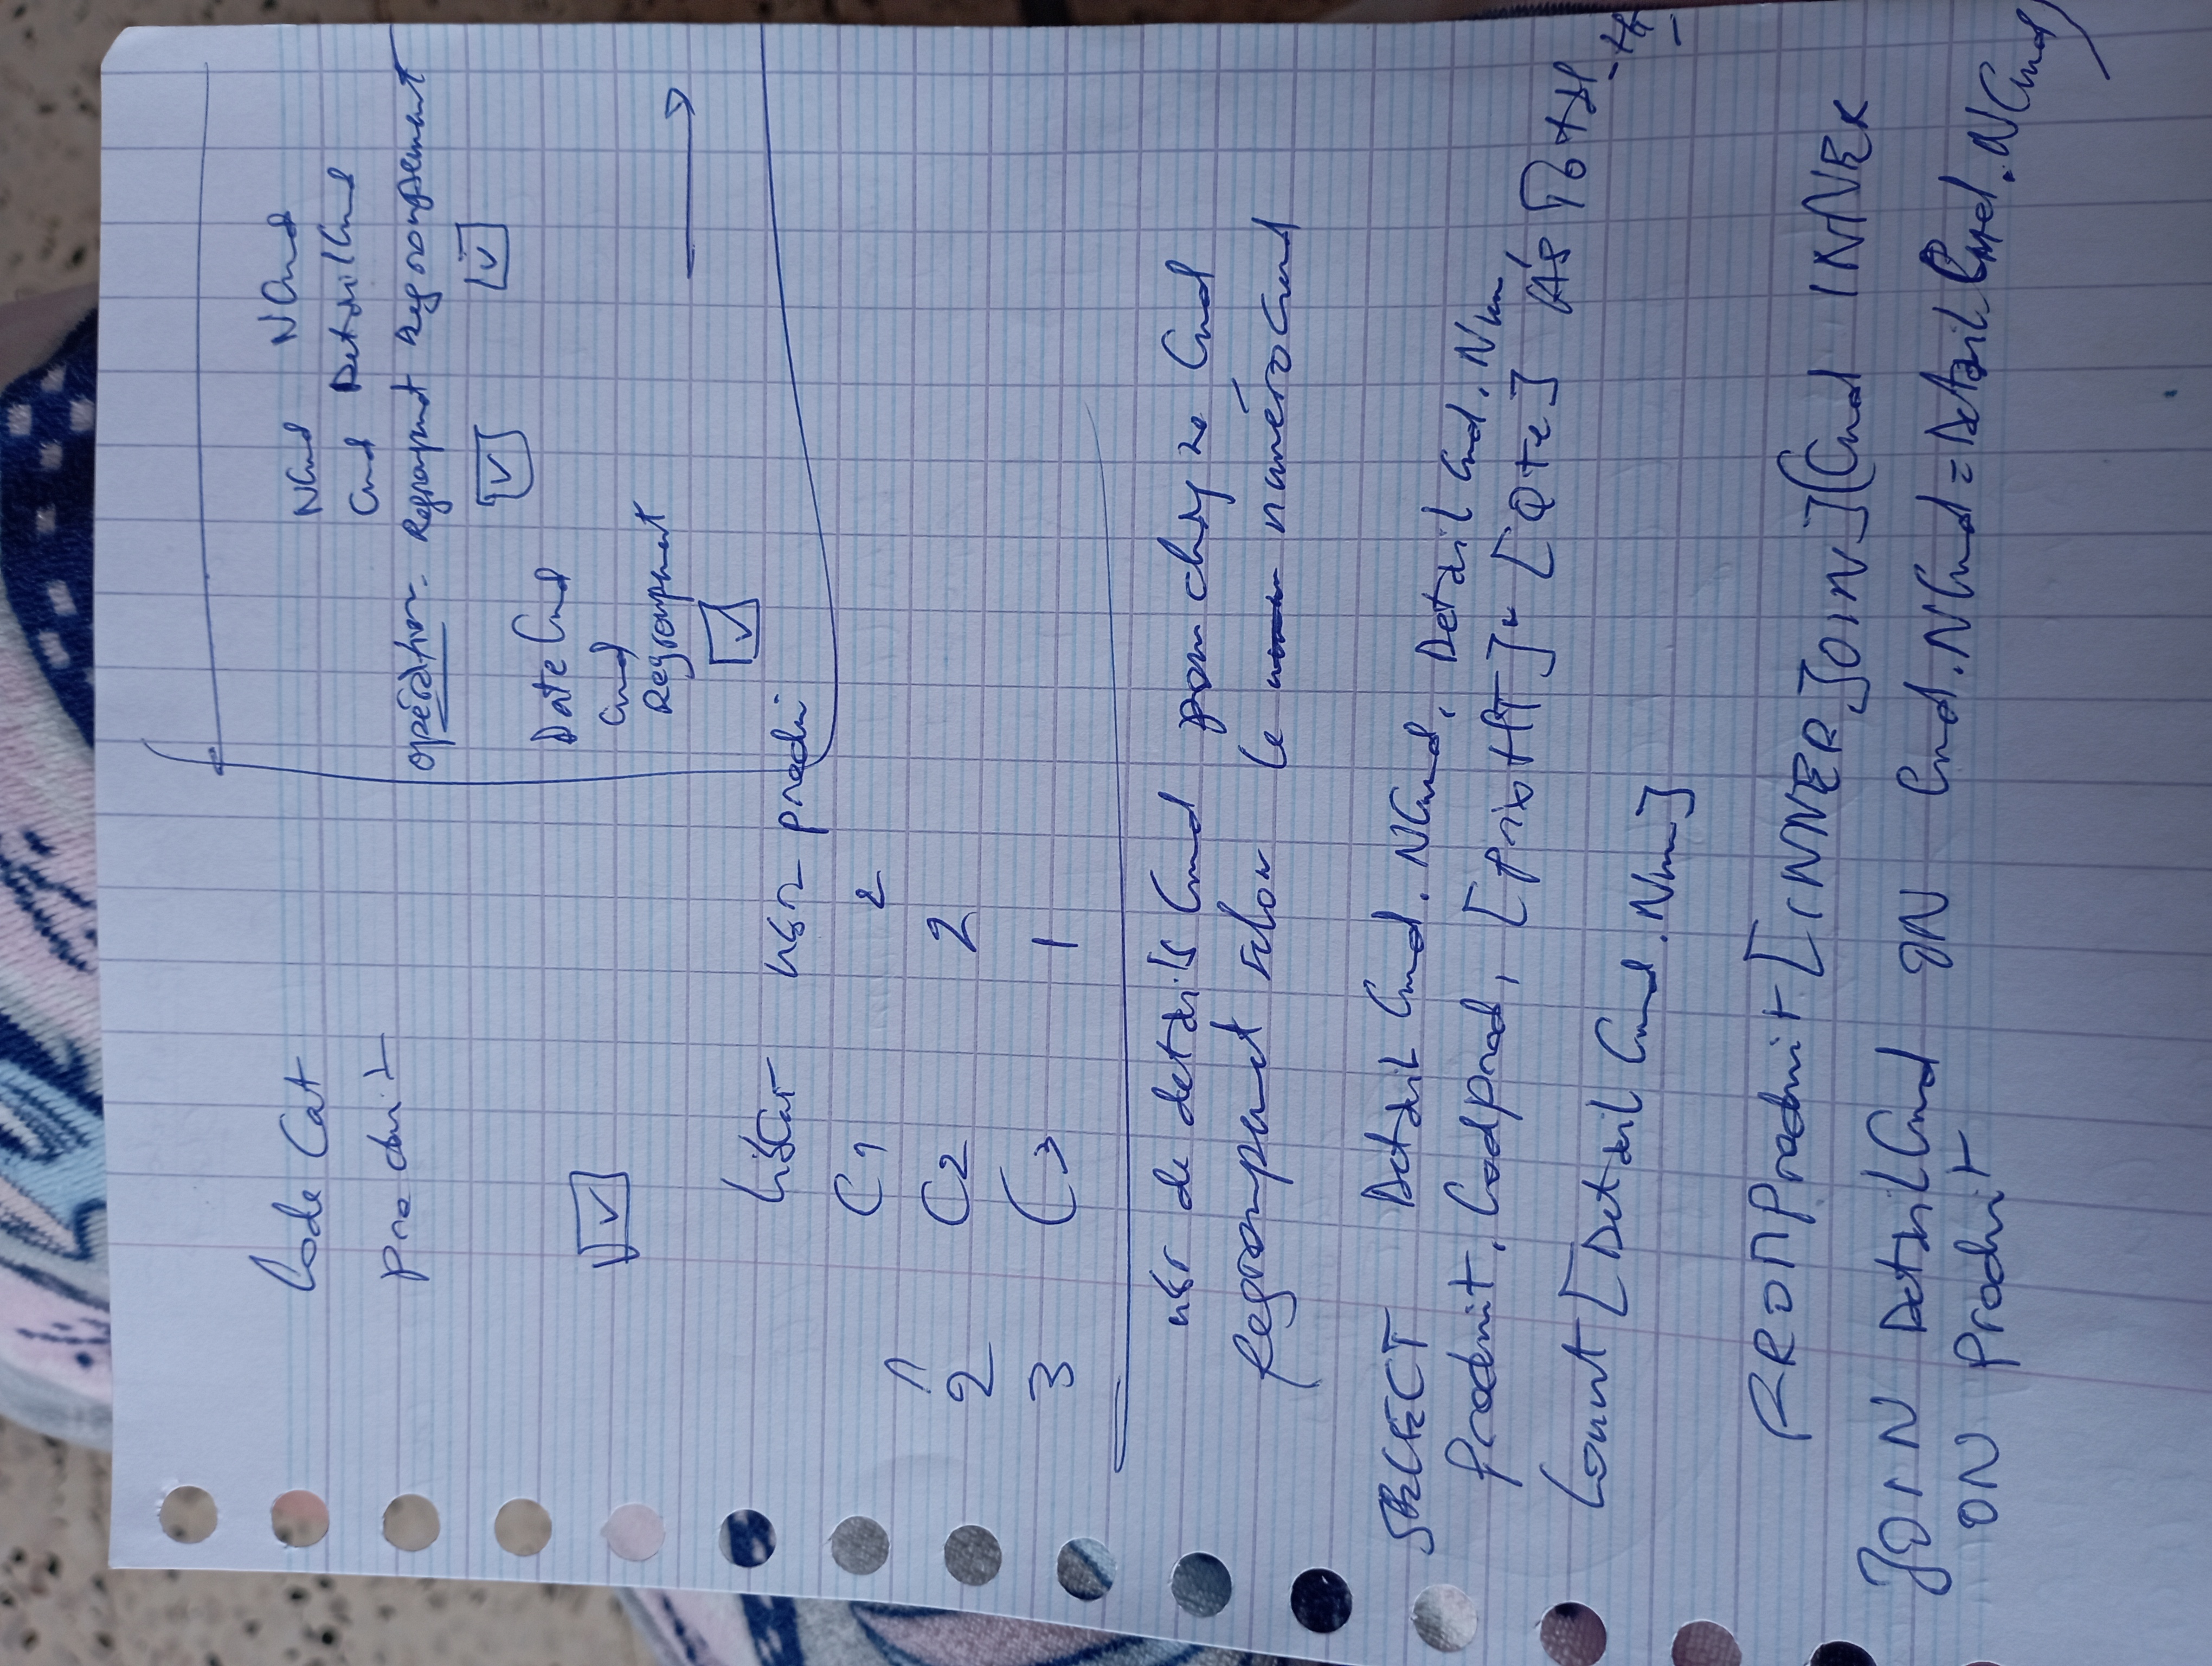 Code Cat
produit
NCmd NCmd
Cmd DetailCmd
opération Regroupment Regroupement
DateCmd
Cmd
Regroupment
LisCat nbr produi
C1 2
1
2 C2 2
3 C3 1
nbr de details Cmd pour chaque Cmd
Regroupment selon le numéroCmd
SELECT Detail Cmd.NCmd, Detail Cmd.Num,
Produit.CodProd, [PrixHT]*[Qte] AS Tot
Count[Detail Cmd.Num]
FROM Produit [INNER JOIN](Cmd INNER
JOIN DetailCmd ON Cmd.NCmd=Detail.Cmd.NCmd)
ON Produit